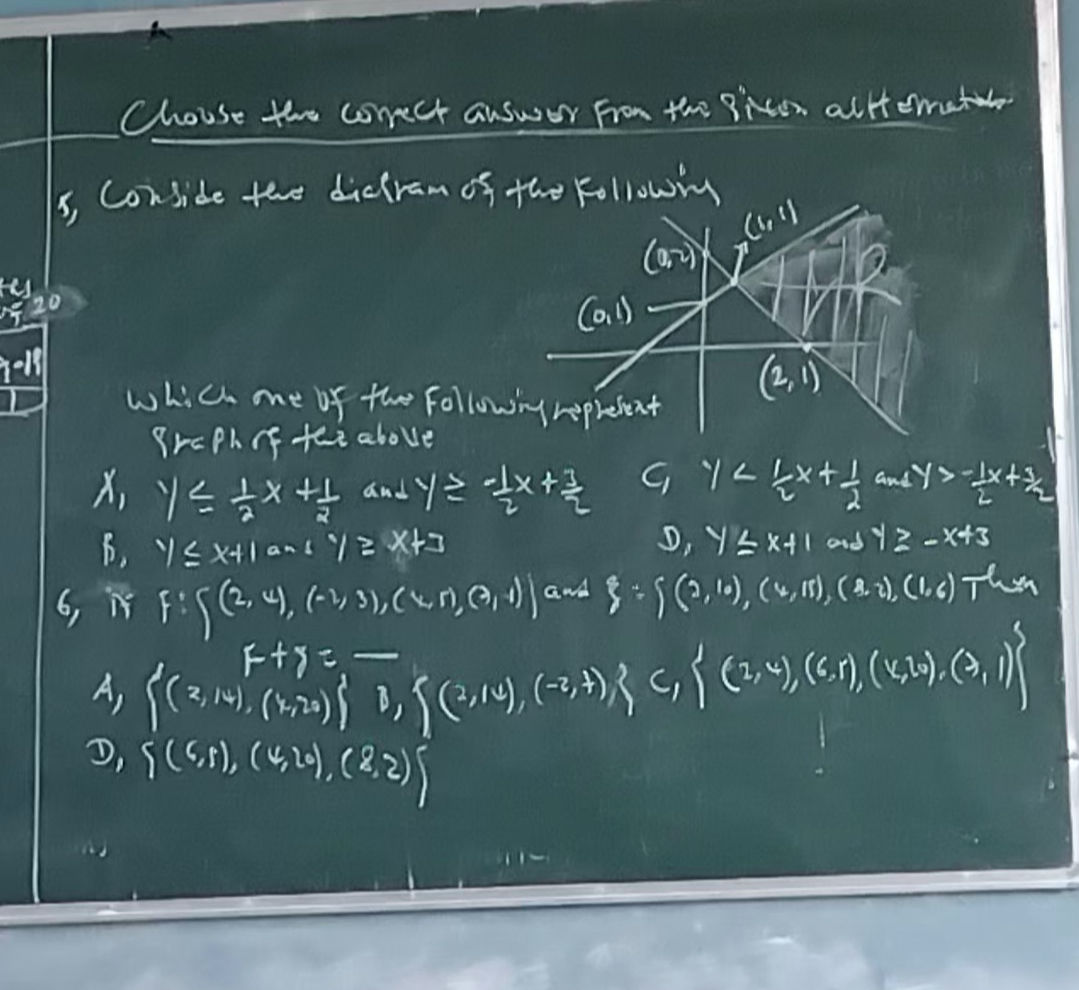 Choose the correct answer from the given alternat
5, Conside the diagram of the Following
(1,1)
(0,2)
R
(0,1)
(2,1)
20
which one of the Following represent
graph of the above
A, y ≤ 1/2 x + 1/2 and y ≥ -1/2 x + 3/2
C, y < 1/2 x + 1/2 and y > -1/2 x + 3/2
B, y ≤ x+1 and y ≥ x+3
D, y ≤ x+1 and y ≥ -x+3
6, if F = {(2, 4), (-2, 3), (4, 5), (7, -1)} and g = {(2, 10), (4, 15), (8, 2), (1, 6) Then
F + g = —
A, {(2, 14), (4, 20)} B, {(2, 14), (-2, 7)} C, {(2, 4), (6, 5), (4, 20), (7, 1)}
D, {(6, 5), (4, 20), (8, 2)}